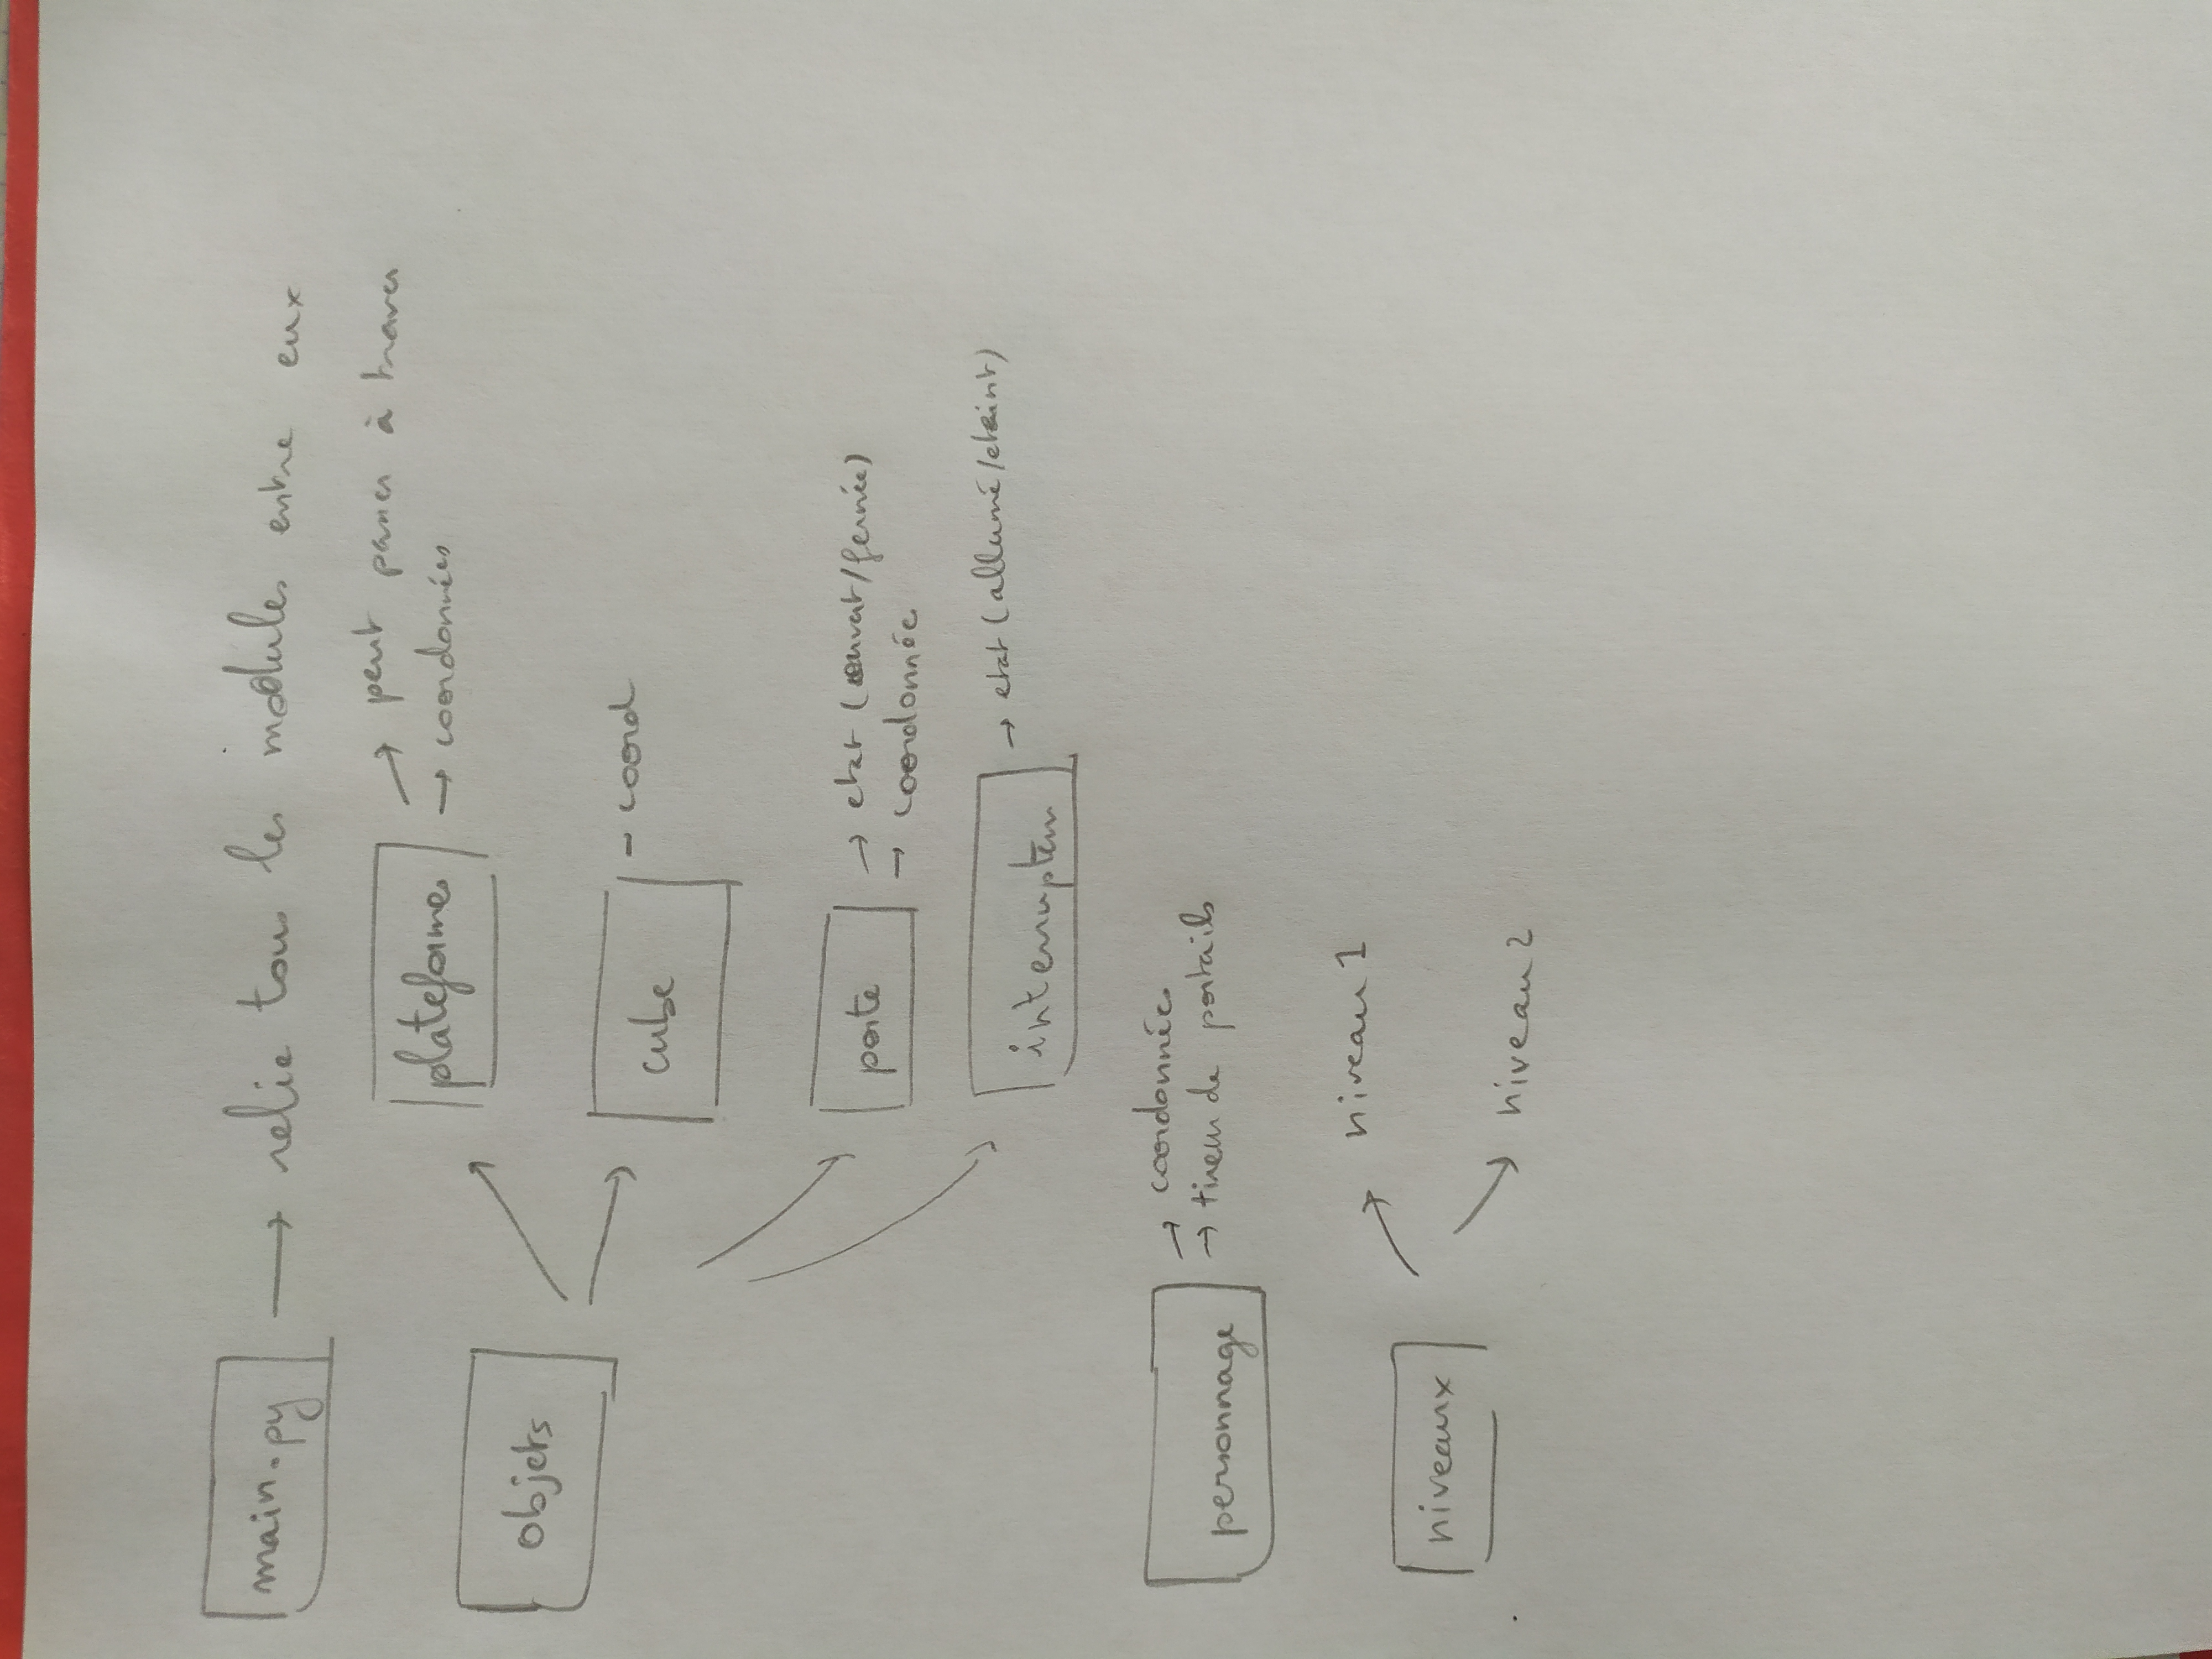 main.py → relie tous les modules entre eux
plateformes → peut passer à travers
→ coordonnées
objets
cube - coord
porte → etat (ouvert/fermée)
→ coordonnée
interrupteur → etat (allumé/eteint)
personnage → coordonnées
→ tireur de portails
niveau 1
niveaux
niveau 2